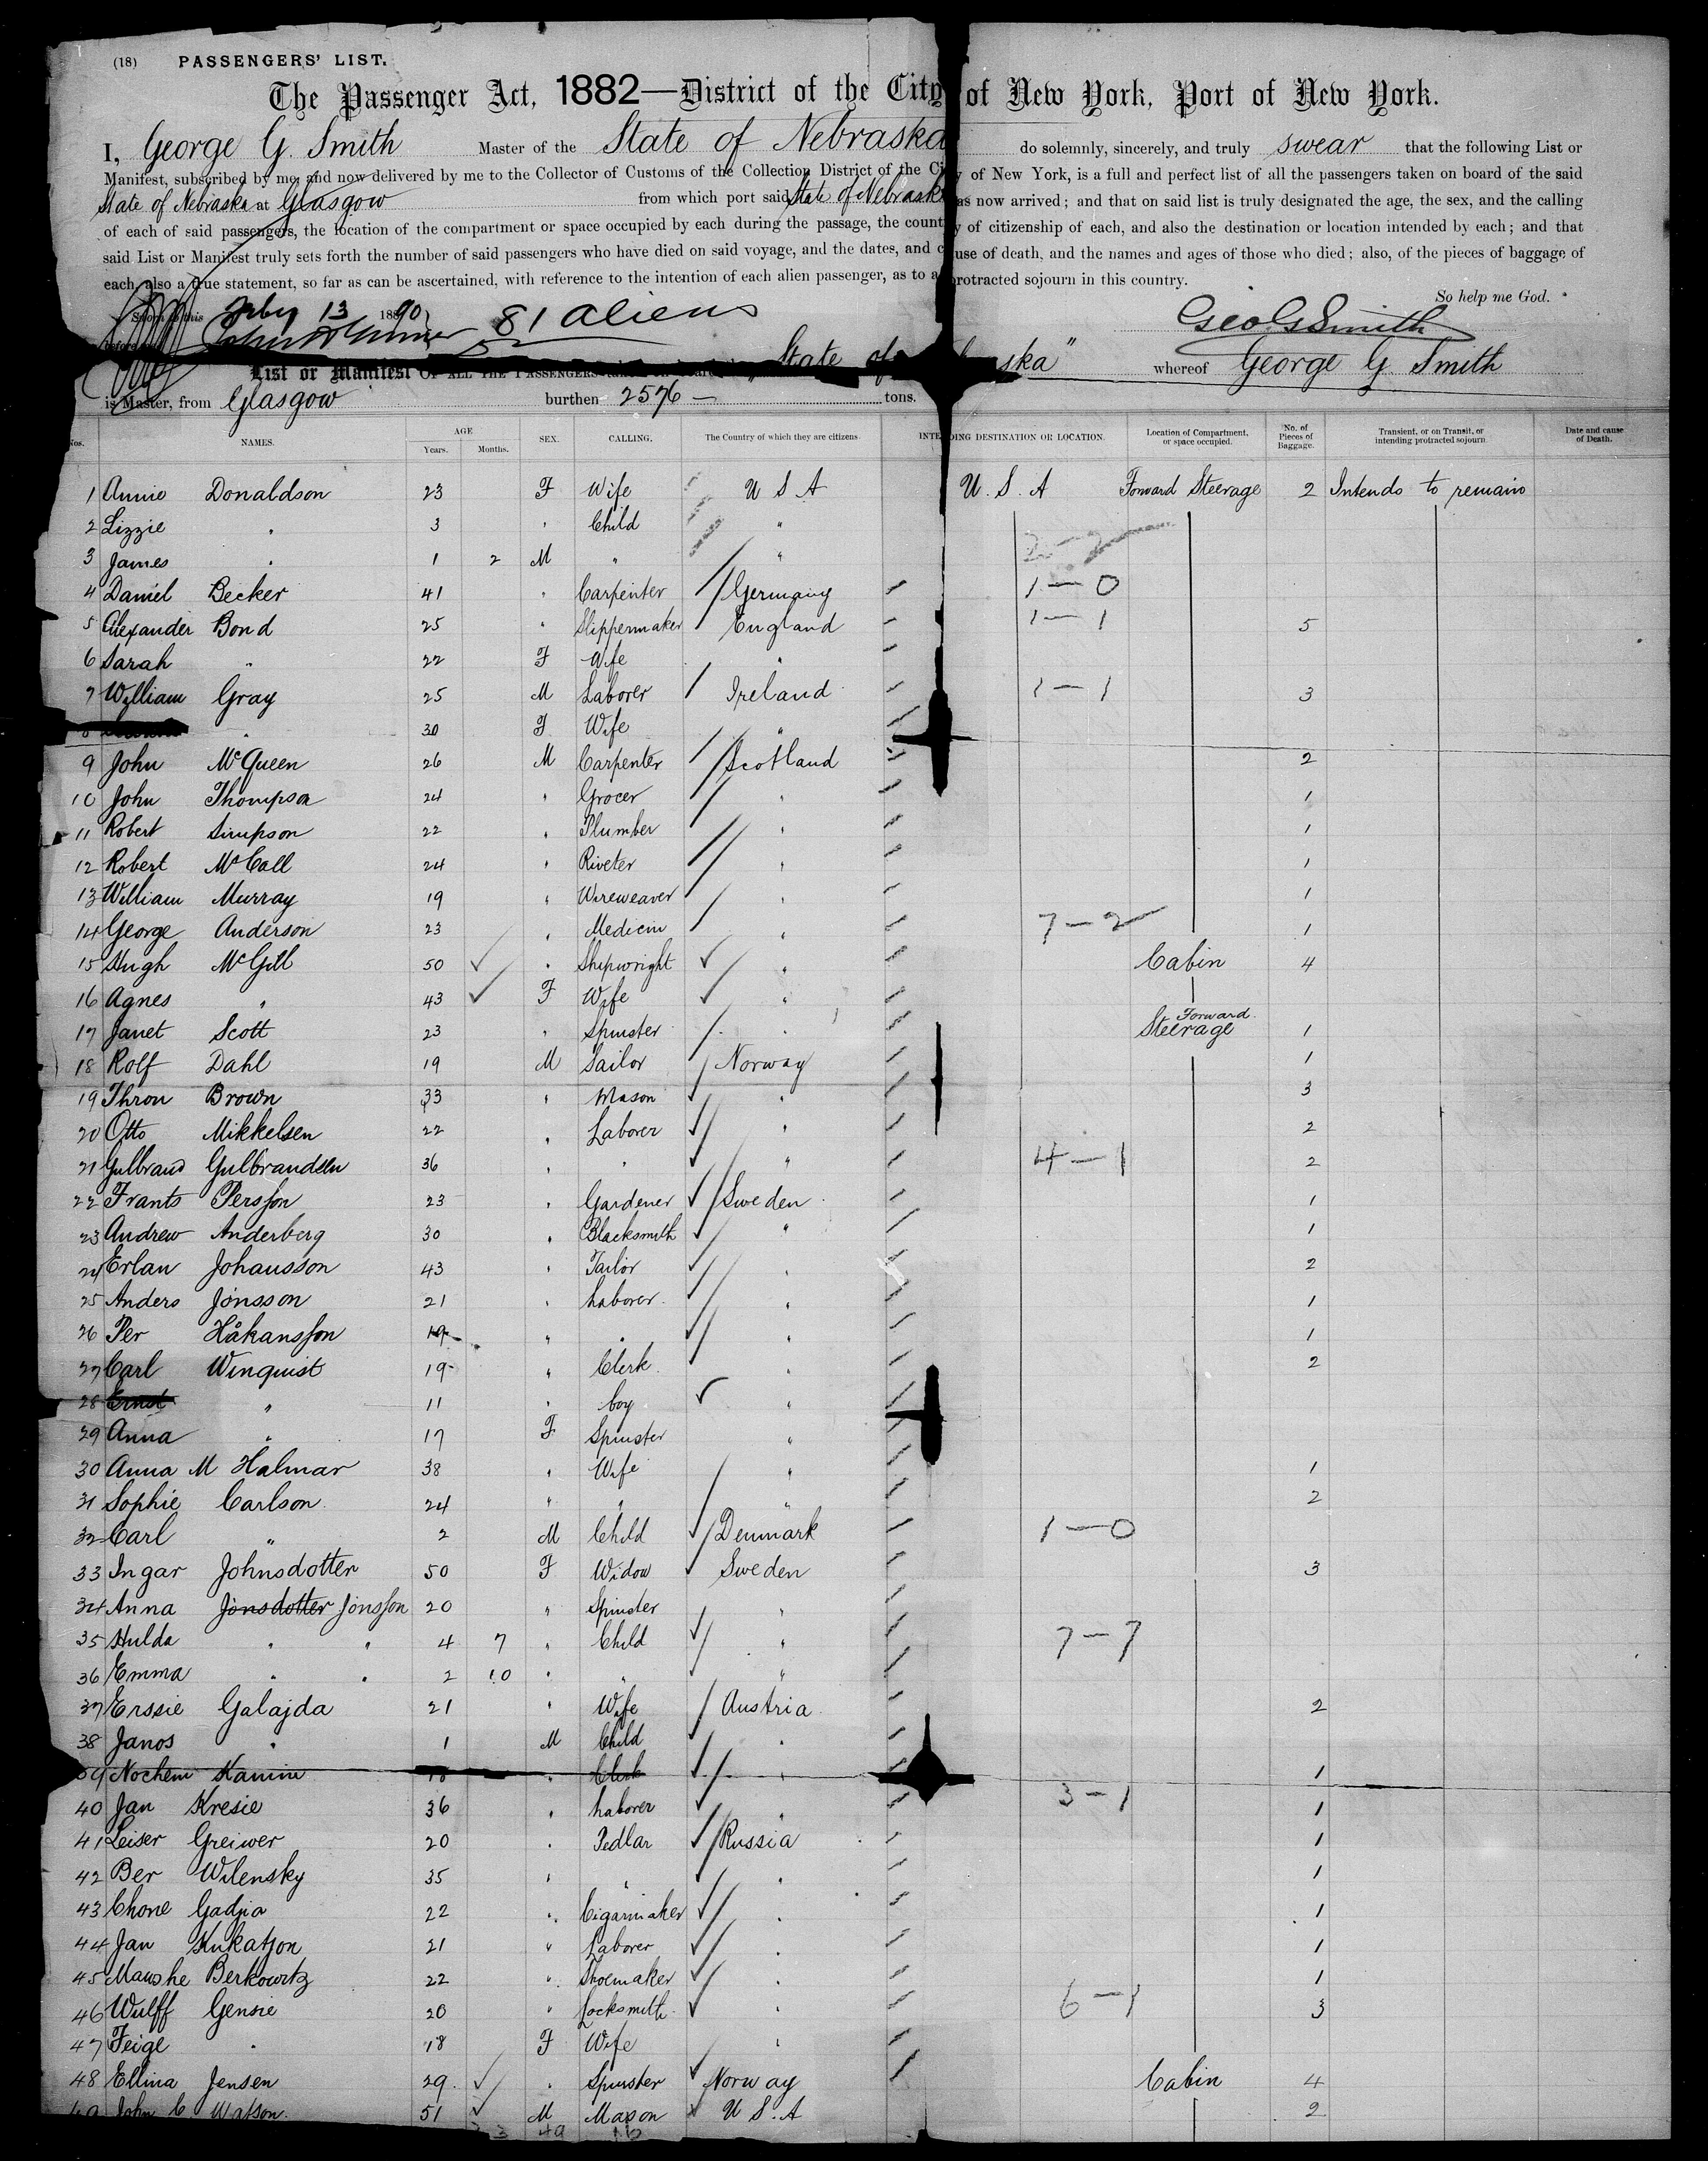 (18) PASSENGERS' LIST.
The Passenger Act, 1882—District of the City of New York, Port of New York.
I, George G. Smith Master of the State of Nebraska do solemnly, sincerely, and truly swear that the following List or
Manifest, subscribed by me, and now delivered by me to the Collector of Customs of the Collection District of the City of New York, is a full and perfect list of all the passengers taken on board of the said
State of Nebraska at Glasgow from which port said State of Nebraska has now arrived; and that on said list is truly designated the age, the sex, and the calling
of each of said passengers, the location of the compartment or space occupied by each during the passage, the country of citizenship of each, and also the destination or location intended by each; and that
said List or Manifest truly sets forth the number of said passengers who have died on said voyage, and the dates, and cause of death, and the names and ages of those who died; also, of the pieces of baggage of
each, also a true statement, so far as can be ascertained, with reference to the intention of each alien passenger, as to a protracted sojourn in this country.
So help me God.
Sworn to this Feby 13 1890 81 aliens Geo G Smith
List or Manifest OF ALL THE PASSENGERS State of Nebraska" whereof George G. Smith
is Master, from Glasgow burthen 2576 — tons.
Nos. NAMES. AGE Years. Months. SEX. CALLING. The Country of which they are citizens. INTENDING DESTINATION OR LOCATION. Location of Compartment, or space occupied. No. of Pieces of Baggage. Transient, or on Transit, or intending protracted sojourn. Date and cause of Death.
1 Annie Donaldson 23 F Wife U S A U. S. A Forward Steerage 2 Intends to remain
2 Lizzie " 3 " Child " 2-2
3 James " 1 2 M " "
4 Daniel Becker 41 " Carpenter Germany 1-0
5 Alexander Bond 25 " Slippermaker England 1-1 5
6 Sarah " 22 F Wife "
7 William Gray 25 M Laborer Ireland 1-1 3
8 " 30 F Wife "
9 John McQueen 26 M Carpenter Scotland 2
10 John Thompson 24 " Grocer " 1
11 Robert Simpson 22 " Plumber " 1
12 Robert McCall 24 " Riveter " 1
13 William Murray 19 " Wireweaver " 1
14 George Anderson 23 " Medicin " 7-2 1
15 Hugh McGill 50 " Shipwright " Cabin 4
16 Agnes " 43 F Wife "
17 Janet Scott 23 " Spinster " Forward Steerage 1
18 Rolf Dahl 19 M Sailor Norway 1
19 Thron Brown 33 " Mason " 3
20 Otto Mikkelsen 22 " Laborer " 2
21 Gulbrand Gulbrandsen 36 " " " 4-1 2
22 Frants Persson 23 " Gardener Sweden 1
23 Andrew Anderberg 30 " Blacksmith " 1
24 Erlan Johansson 43 " Tailor " 2
25 Anders Jönsson 21 " Laborer " 1
26 Per Håkansson 19 " " " 1
27 Carl Winquist 19 " Clerk " 2
28 Ernst " 11 " boy "
29 Anna " 17 F Spinster "
30 Anna M Halmar 38 " Wife " 1
31 Sophie Carlson 24 " " " 2
32 Carl " 2 M Child Denmark 1-0
33 Ingar Johnsdotter 50 F Widow Sweden 3
34 Anna Jönsdotter Jönsson 20 " Spinster "
35 Hulda " " 4 7 " Child " 7-7
36 Emma " " 2 10 " " "
37 Erssie Galajda 21 " Wife Austria 2
38 Janos " 1 M Child "
39 Nochem Kamin 18 " Clerk " 1
40 Jan Kresie 36 " Laborer " 3-1 1
41 Leiser Greiwer 20 " Pedlar Russia 1
42 Ber Wilensky 35 " " " 1
43 Chone Gadjia 22 " Cigarmaker " 1
44 Jan Kukatjon 21 " Laborer " 1
45 Maushe Berkowitz 22 " Shoemaker " 1
46 Wulff Gensie 20 " Locksmith " 6-1 3
47 Feige " 18 F Wife "
48 Ellina Jensen 29 " Spinster Norway Cabin 4
49 John C Watson 51 M Mason U S. A 2